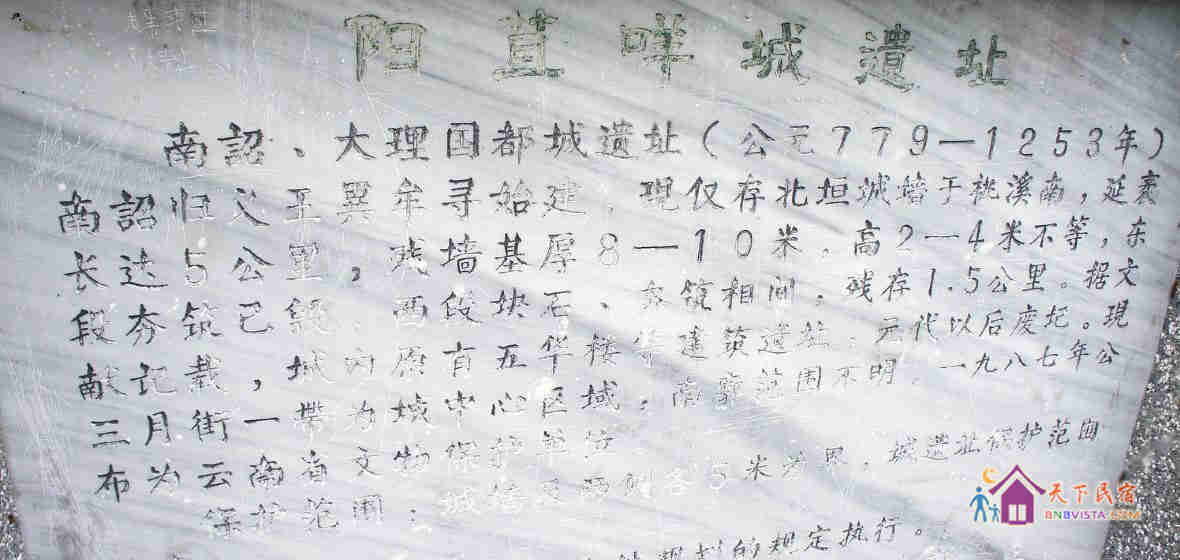 阳苴咩城遺址
南詔、大理国都城遺址（公元779—1253年）
南詔归义王異牟寻始建，現仅存北垣城墙于桃溪南，延袤
长达5公里，残墙基厚8—10米，高2—4米不等，东
段夯筑已毁，西段块石、夯筑相间，残存1.5公里。据文
献记载，城内原有五华楼等建筑遗址，元代以后废圮。現
三月街一带为城中心区域，南寨范围不明，一九八七年公
布为云南省文物保护单位。
保护范围：城墙及两侧各5米为界，城遗址保护范围
规划的规定执行。
天下民宿
BNBVISTA.COM